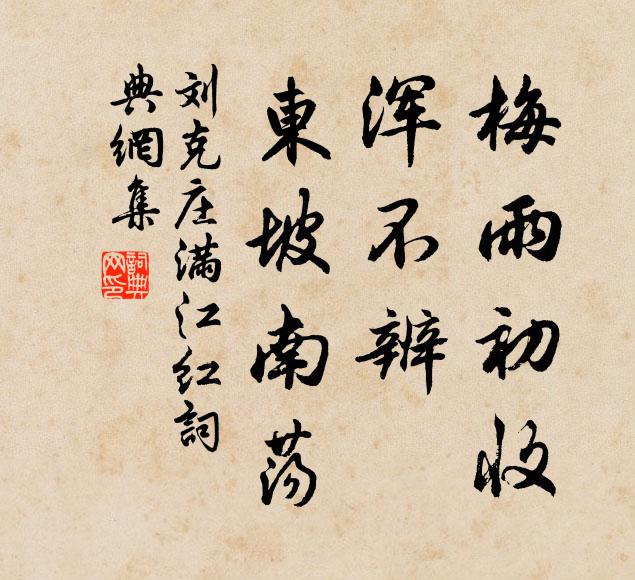 梅雨初收
浑不辨
東坡南荡
刘克庄满江红詞
典網集
詞典
网印